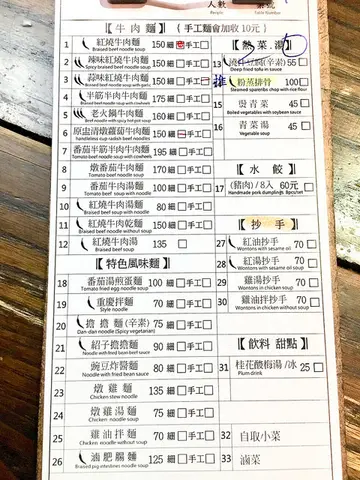 人數
桌號
People
Table Number
【牛肉麵】(手工麵會加收10元)
1 紅燒牛肉麵 150 細 手工
Braised beef noodle soup
2 辣味紅燒牛肉麵 150 細 手工
Spicy braised beef noodle soup
3 蒜味紅燒牛肉麵 150 細 手工
4 半筋半肉牛肉麵 150 細 手工
Braised beef noodle soup with cowheels
5 老火鍋牛肉麵 170 細 手工
noodle with spicy hot-pot soup
6 原盅清燉蘿蔔牛肉麵 150 細 手工
7 番茄半筋半肉牛肉麵 195 細 手工
Tomato beef noodle soup with cowheels
8 燉番茄牛肉麵 150 細 手工
Tomato beef noodle soup
9 番茄牛肉湯麵 100 細 手工
Tomato beef noodle soup
10 紅燒牛肉湯麵 80 細 手工
Braised beef noodle soup
11 紅燒牛肉乾麵 150 細 手工
Braised beef noodle without soup
12 紅燒牛肉湯 135
Braised beef soup
【特色風味麵】
18 番茄湯煎蛋麵 100 細 手工
Tomato fried egg noodle soup
19 重慶拌麵 70 細 手工
Style noodle
20 擔擔麵(辛素) 75 細 手工
Dan-dan noodle (Spicy vegetarian)
21 紹子擔擔麵 90 細 手工
Noodle with fried bean beef sauce
22 豌豆炸醬麵 80 細 手工
Noodle with fried bean sauce
23 燉雞麵 135 細 手工
Chicken stew noodle
24 燉雞湯麵 75 細 手工
Chicken noodle soup
25 雞油拌麵 70 細 手工
Chicken noodle without soup
26 滷肥腸麵 125 細 手工
Braised pig intestines noodle soup
【熱菜湯】
13 燒牛豆腐(辛素) 55
Deep fried tofu in sauce
推
14 粉蒸排骨 100
Steamed spareribs chop with rice flour
15 燙青菜 45
Boiled vegetables with soybean sauce
16 青菜湯 45
Vegetable soup
【水餃】
17 (豬肉)/8入 60元
Handmade pork dumplings 8pcs/set
【抄手】
27 紅油抄手 70
Wontons with sesame oil
28 紅湯抄手 70
Wontons with sesame oil soup
29 雞湯抄手 70
Wontons in chicken soup
30 雞油拌抄手 70
Wontons in chicken without soup
【飲料 甜點】
31 桂花酸梅湯/冰 25
Plum drink
32 自取小菜
33 滷菜